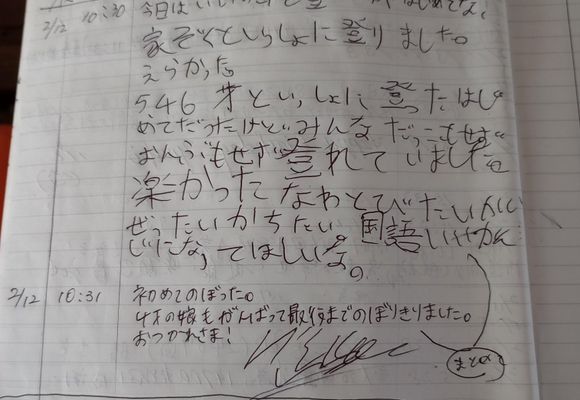 2/12 10:30 今日は
家ぞくといっしょに登りました。
えらかったな
546才といっしょに登ったはじ
めてだったけどみんなだっこもせず
おんぶもせず登れていました
楽かったなわとびたいかい
ぜったいかちたい。国語いやかん
じになってほしいな。
2/12 10:31 初めてのぼった。
4才の娘もがんばって最後までのぼりきりました。
おつかれさま!